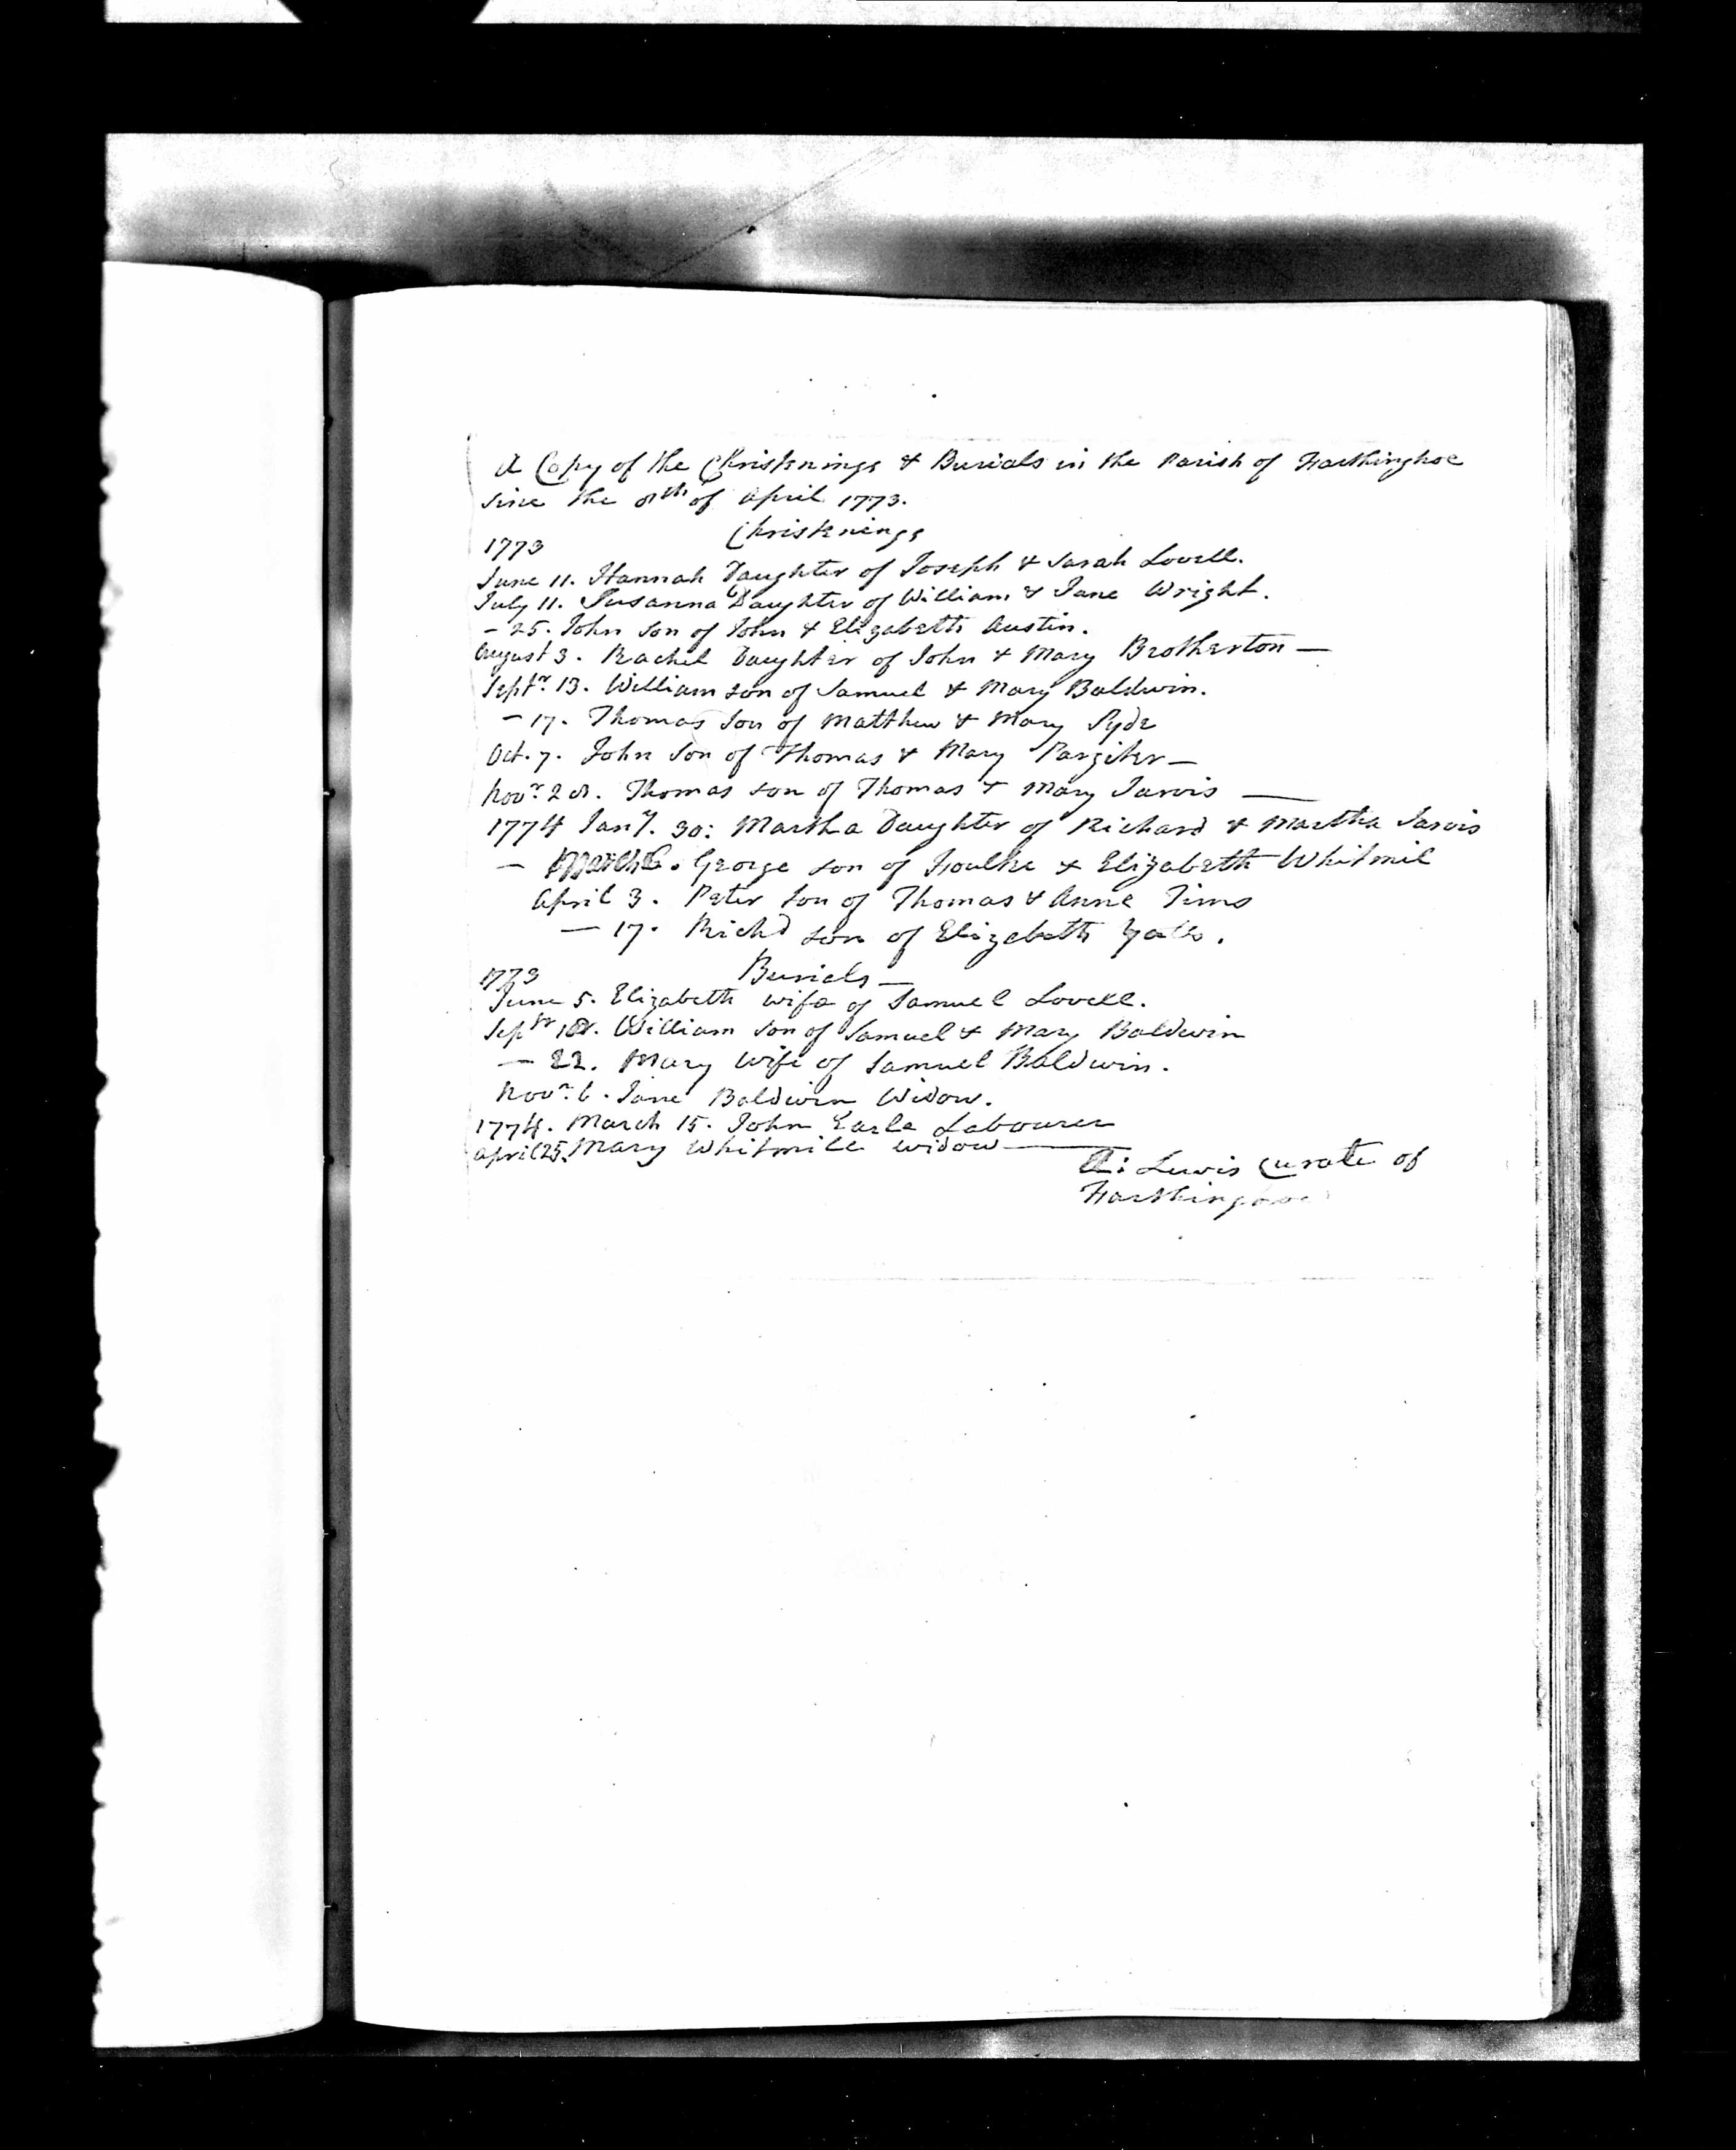 A Copy of the Christnings & Burials in the Parish of Farthinghoe
Sine the 8th of April 1773.
Christnings
1773
June 11. Hannah Daughter of Joseph & Sarah Lovell.
July 11. Susanna Daughter of William & Jane Wright.
- 25. John son of John & Elizabeth Austin.
August 3. Rachel Daughter of John & Mary Brotherton —
Septr. 13. William son of Samuel & Mary Baldwin.
- 17. Thomas Son of Matthew & Mary Syde
Oct. 7. John Son of Thomas & Mary Pargiter —
Novr. 28. Thomas son of Thomas & Mary Jarvis —
1774 Jany. 30: Martha Daughter of Richard & Martha Jarvis
— March 6. George son of Foulke & Elizabeth Whitmil
April 3. Peter Son of Thomas & Anne Tims
— 17. Richd son of Elizabeth
Burials —
1773
June 5. Elizabeth wife of Samuel Lovell.
Septr 18. William Son of Samuel & Mary Baldwin
— 22. Mary Wife of Samuel Baldwin.
Novr. 6. Jane Baldwin Widow.
1774. March 15. John Earle Labourer
April 25. Mary Whitmill widow —
Lewis Curate of
Farthinghoe